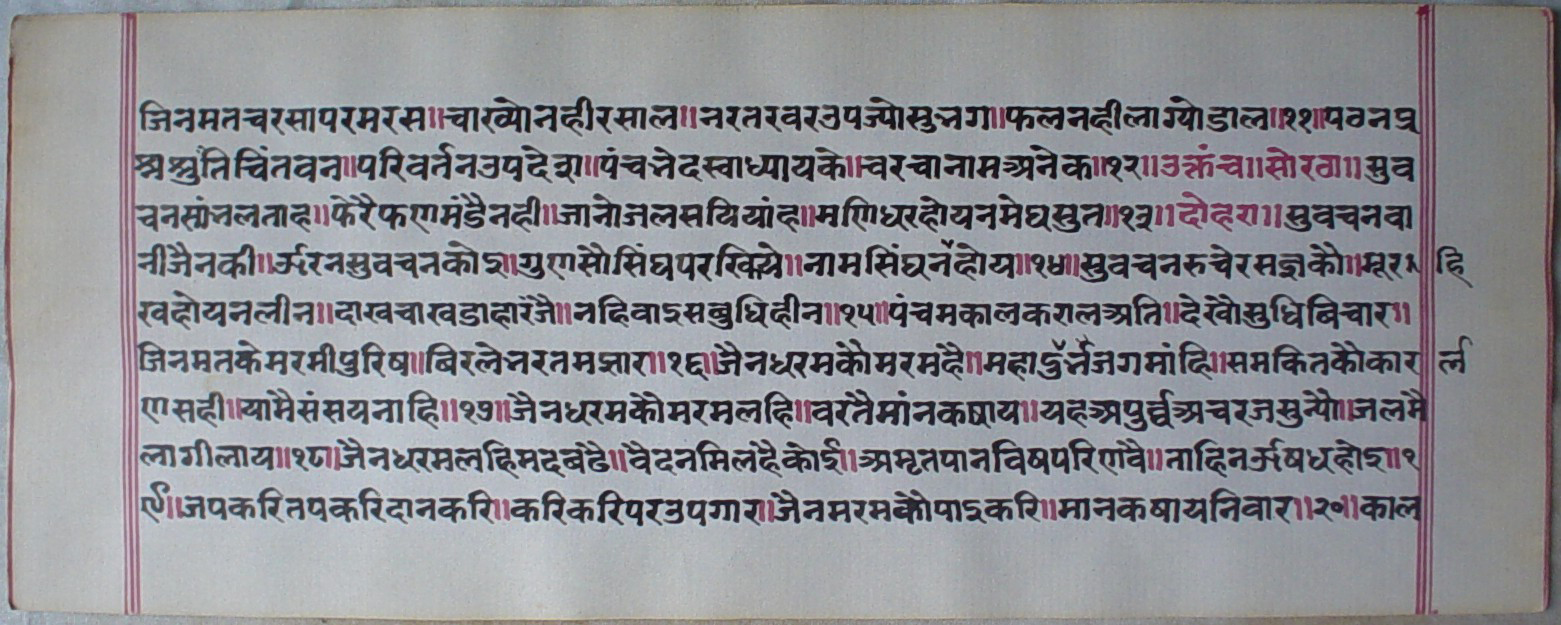 जिनमतचरसापरमरस॥चाख्योनहीरसाल॥नरतरवरउपज्योसुभग॥फलनहीलाग्योडाल॥११॥पठनप्र
श्नश्रुंतिचिंतवन॥परिवर्तनउपदेश॥पंचभेदस्वाध्यायके॥चरचानामअनेक॥१२॥उक्तंच॥सोरठा॥सुव
चनसांभलताह॥फेरैफणमंडैनही॥जानोजलसयियांह॥मणिधरहोयनमेघसुत॥१३॥दोहरा॥सुवचनवा
नीजैनकी॥ऊरनसुवचनकोइ॥गुणसौसिंघपरखिये॥नामसिंघनहोय॥१४॥सुवचनरुचेरसज्ञकौ॥मूर हि
खहोयनलीन॥दाखचाखडाहारंजै॥नहिवाइसबुधिहीन॥१५॥पंचमकालकरालअति॥देखौसुधिबिचार॥
जिनमतकेमरमीपुरिष॥बिरलेभरतमझार॥१६॥जैनधरमकौमरमहै॥महादुर्लभजगमांहि॥समकितकौकार र्ल
णसही॥यामैसंसयनाहि॥१७॥जैनधरमकौमरमलहि॥वरतैमांनकषाय॥यहअपुर्वअचरजसुन्यौ॥जलमै
लागीलाय॥१८॥जैनधरमलहिमदबंढै॥वैदनमिलहैकोई॥अमृतपानविषपरिणवै॥ताहिनऊषधहोइ॥१
९॥जपकरितपकरिदानकरि॥करिकरिपरउपगार॥जैनमरमकौपाइकरि॥मानकषायनिवार॥२०॥काल